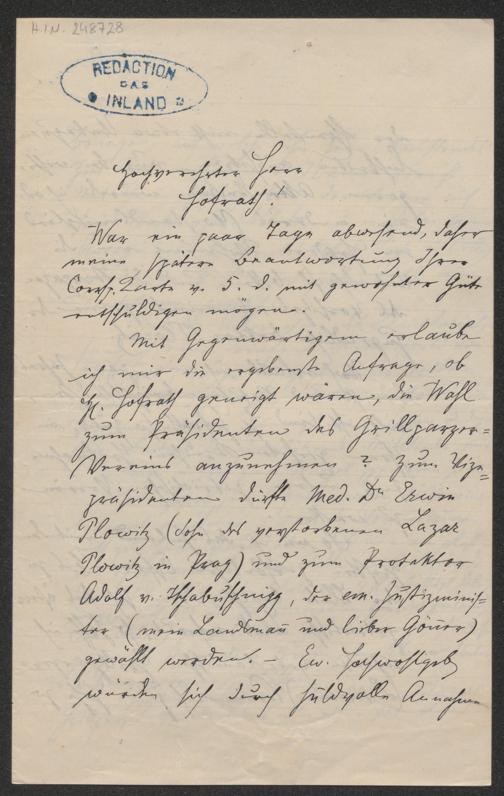 H.I.N. 248728
REDACTION
DAS
INLAND
Hochverehrter Herr
Hofrath!
War ein paar Tage abwesend, daher
meine spätere Beantwortung Ihrer
Corrsp. Karte v. 5. d. mit gewohnter Güte
entschuldigen mögen.
Mit Gegenwärtigem erlaube
ich mir die ergebenste Anfrage, ob
H. Hofrath geneigt wären, die Wahl
zum Präsidenten des Grillparzer=
Vereins anzunehmen? Zum Vize=
präsidenten dürfte Med. Dr Erwin
Plowitz (Sohn des verstorbenen Lazar
Plowitz in Prag) und zum Protektor
Adolf v. Tschabuschnigg, der em. Justizminis=
ter (mein Landsmañ und lieber Göñer)
gewählt werden. – Ew. Hochwohlgeb
würden sich durch huldvolle Annahme